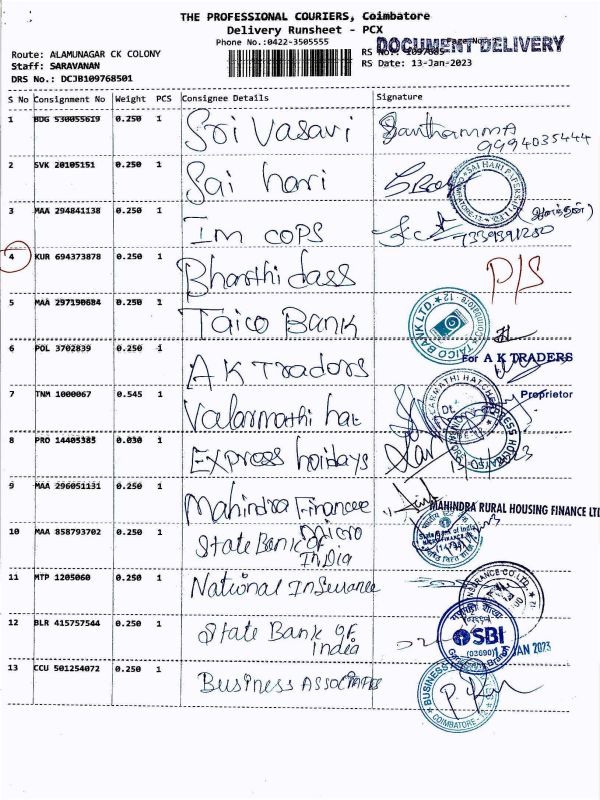 THE PROFESSIONAL COURIERS, Coimbatore
Delivery Runsheet - PCX
Phone No.:0422-3505555
DOCUMENT DELIVERY
Route: ALAMUNAGAR CK COLONY
Staff: SARAVANAN
RS Date: 13-Jan-2023
DRS No.: DCJB109768501
S No Consignment No Weight PCS Consignee Details Signature
1 BDG 530055619 0.250 1 Sri Vasavi Santhamma
9994035444
2 SVK 20105151 0.250 1 Sai hari
3 MAA 294841138 0.250 1 Im cops
7339391250
4 KUR 694373878 0.250 1 Bharthi dass P/S
5 MAA 297190684 0.250 1 Taico Bank
TAICO BANK LTD.
6 POL 3702839 0.250 1 AK Tradors
For A K TRADERS
Proprietor
7 TNM 1000067 0.545 1 Valarmathi hat
8 PRO 14405385 0.030 1 Express hoidays
9 MAA 296051131 0.250 1 Mahindra Financee
MAHINDRA RURAL HOUSING FINANCE LTD
10 MAA 858793702 0.250 1 State Bank of micro
India
State Bank of India
11 MTP 1205060 0.250 1 National Insurance
12 BLR 415757544 0.250 1 State Bank of
India
SBI
(03690)
JAN 2023
13 CCU 501254072 0.250 1 Business Associates
BUSINESS
COIMBATORE